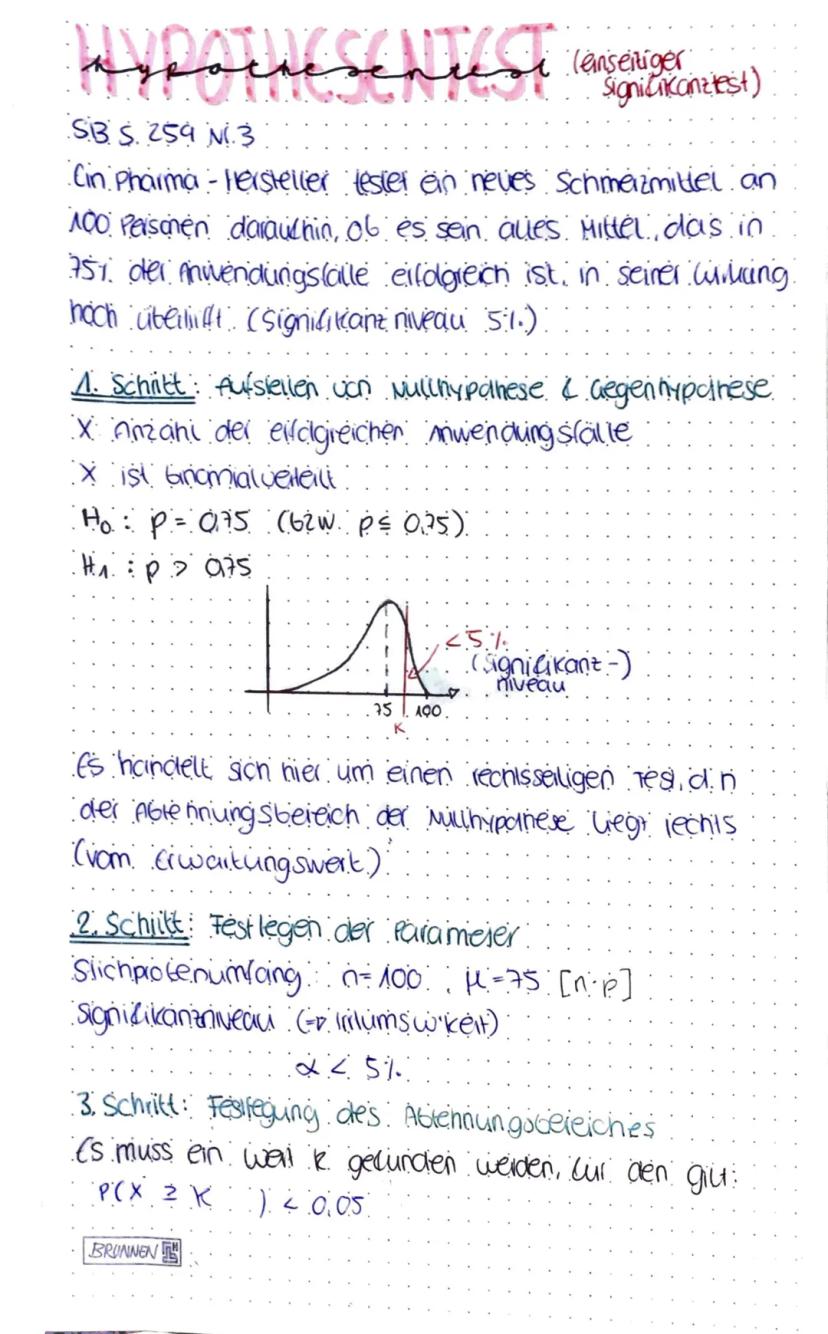 HYPOTHESENTEST
hypothesentest (einseitiger
Signifikanztest)
S.B. S. 259 Nr. 3
Ein Pharma-Hersteller testet ein neues Schmerzmittel an
100 Personen daraufhin, ob es sein altes Mittel, das in
75% der Anwendungsfälle erfolgreich ist, in seiner Wirkung
noch übertrifft. (Signifikanzniveau 5%)
1. Schritt: Aufstellen von Nullhypothese & Gegenhypothese
X Anzahl der erfolgreichen Anwendungsfälle
X ist binomialverteilt
H₀: p = 0,75 (bzw. p ≤ 0,75)
H₁: p > 0,75
<5%
(Signifikanz-)
niveau
75 100
K
Es handelt sich hier um einen rechtsseitigen Test, d.h
der Ablehnungsbereich der Nullhypothese liegt rechts
(vom Erwartungswert)
2. Schritt: Festlegen der Parameter
Stichprobenumfang: n=100 ; μ=75 [n·p]
Signifikanzniveau (=> Irrtumsw'keit)
α < 5%
3. Schritt: Festlegung des Ablehnungsbereiches
Es muss ein Wert k gefunden werden, für den gilt:
P(X ≥ K ) < 0,05
BRUNNEN